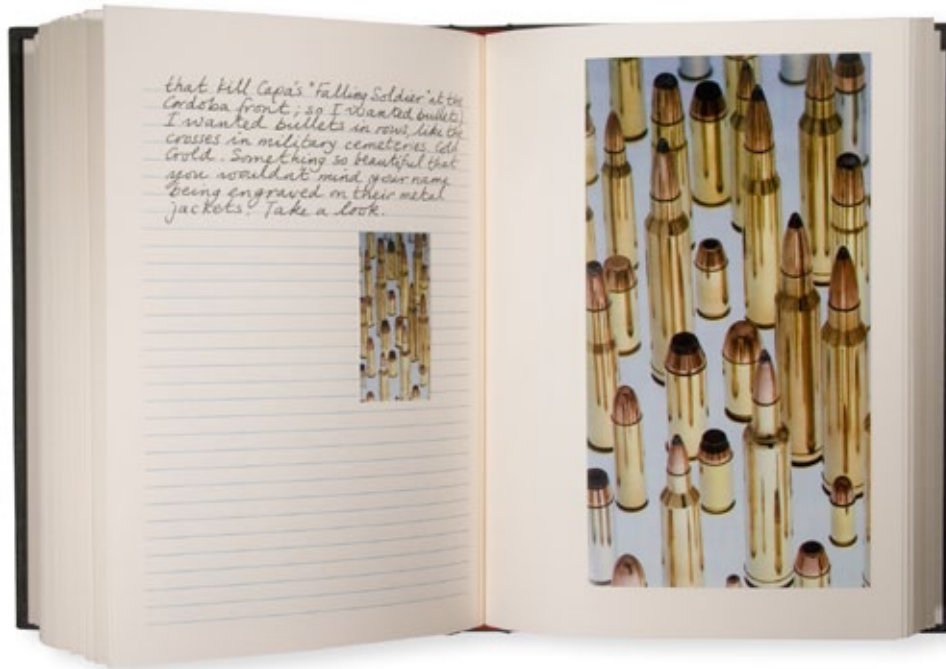 that kill Capa's "Falling Soldier" at the
Cordoba front; so I wanted bullets.
I wanted bullets in rows, like the
crosses in military cemeteries. Cold
Gold. Something so beautiful that
you wouldn't mind your name
being engraved on their metal
jackets. Take a look.